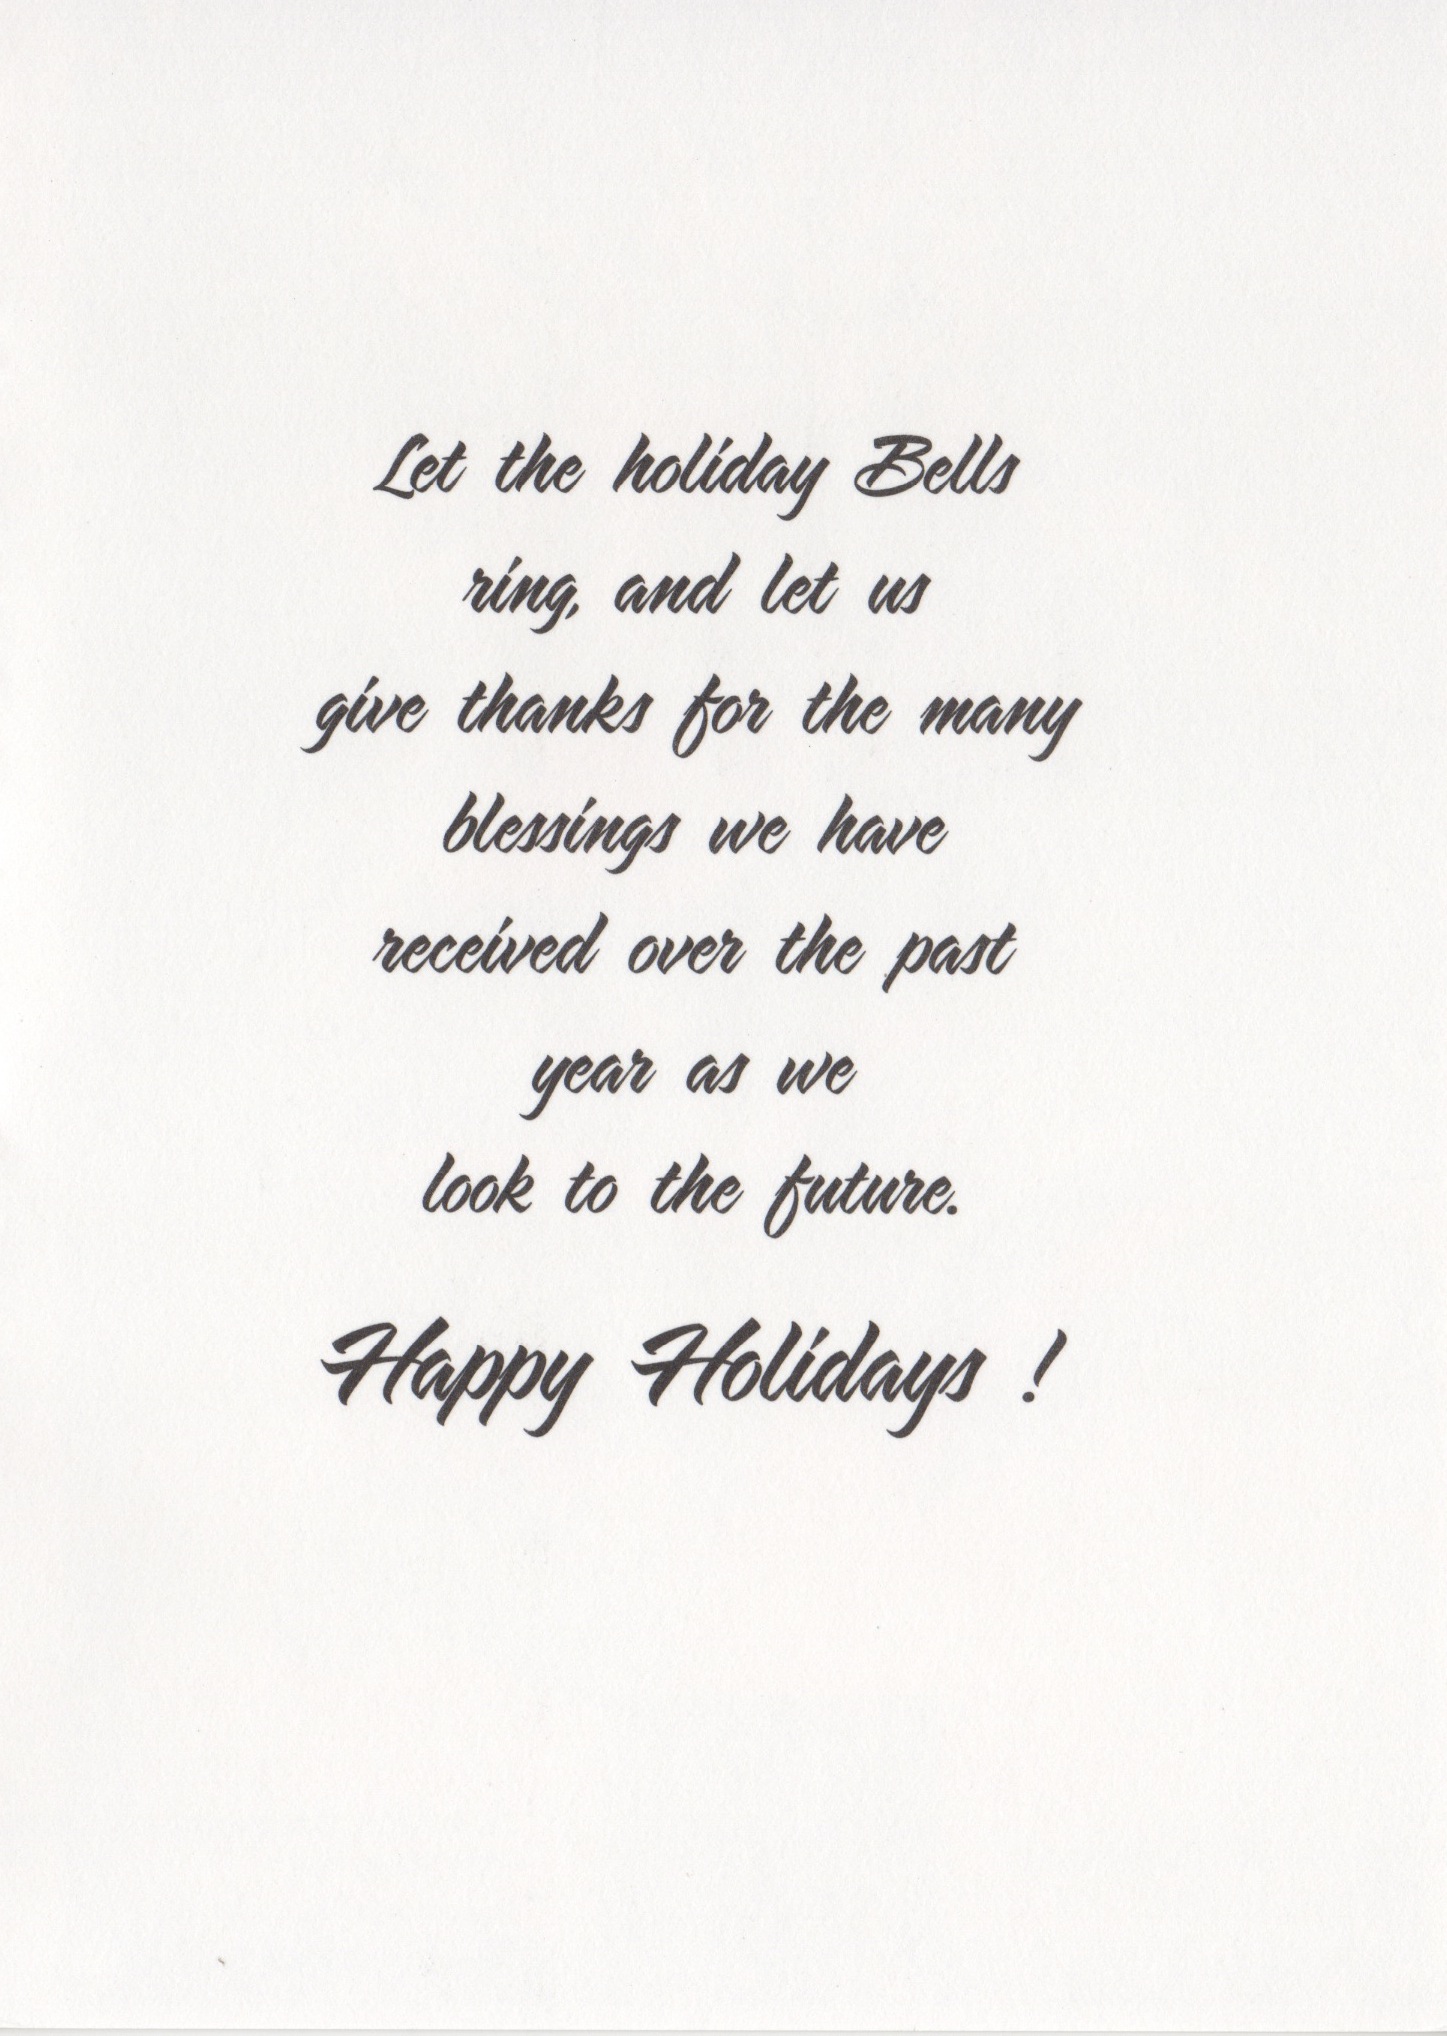 Let the holiday Bells
ring, and let us
give thanks for the many
blessings we have
received over the past
year as we
look to the future.
Happy Holidays !